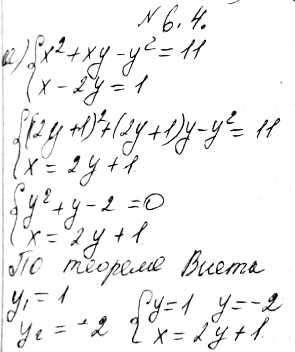 № 6.4.
а) {x² + xy - y² = 11
{x - 2y = 1
{(2y+1)² + (2y+1)y - y² = 11
{x = 2y + 1
{y² + y - 2 = 0
{x = 2y + 1
По теореме Виета
y₁ = 1
y₂ = -2
{y = 1 y = -2
{x = 2y + 1